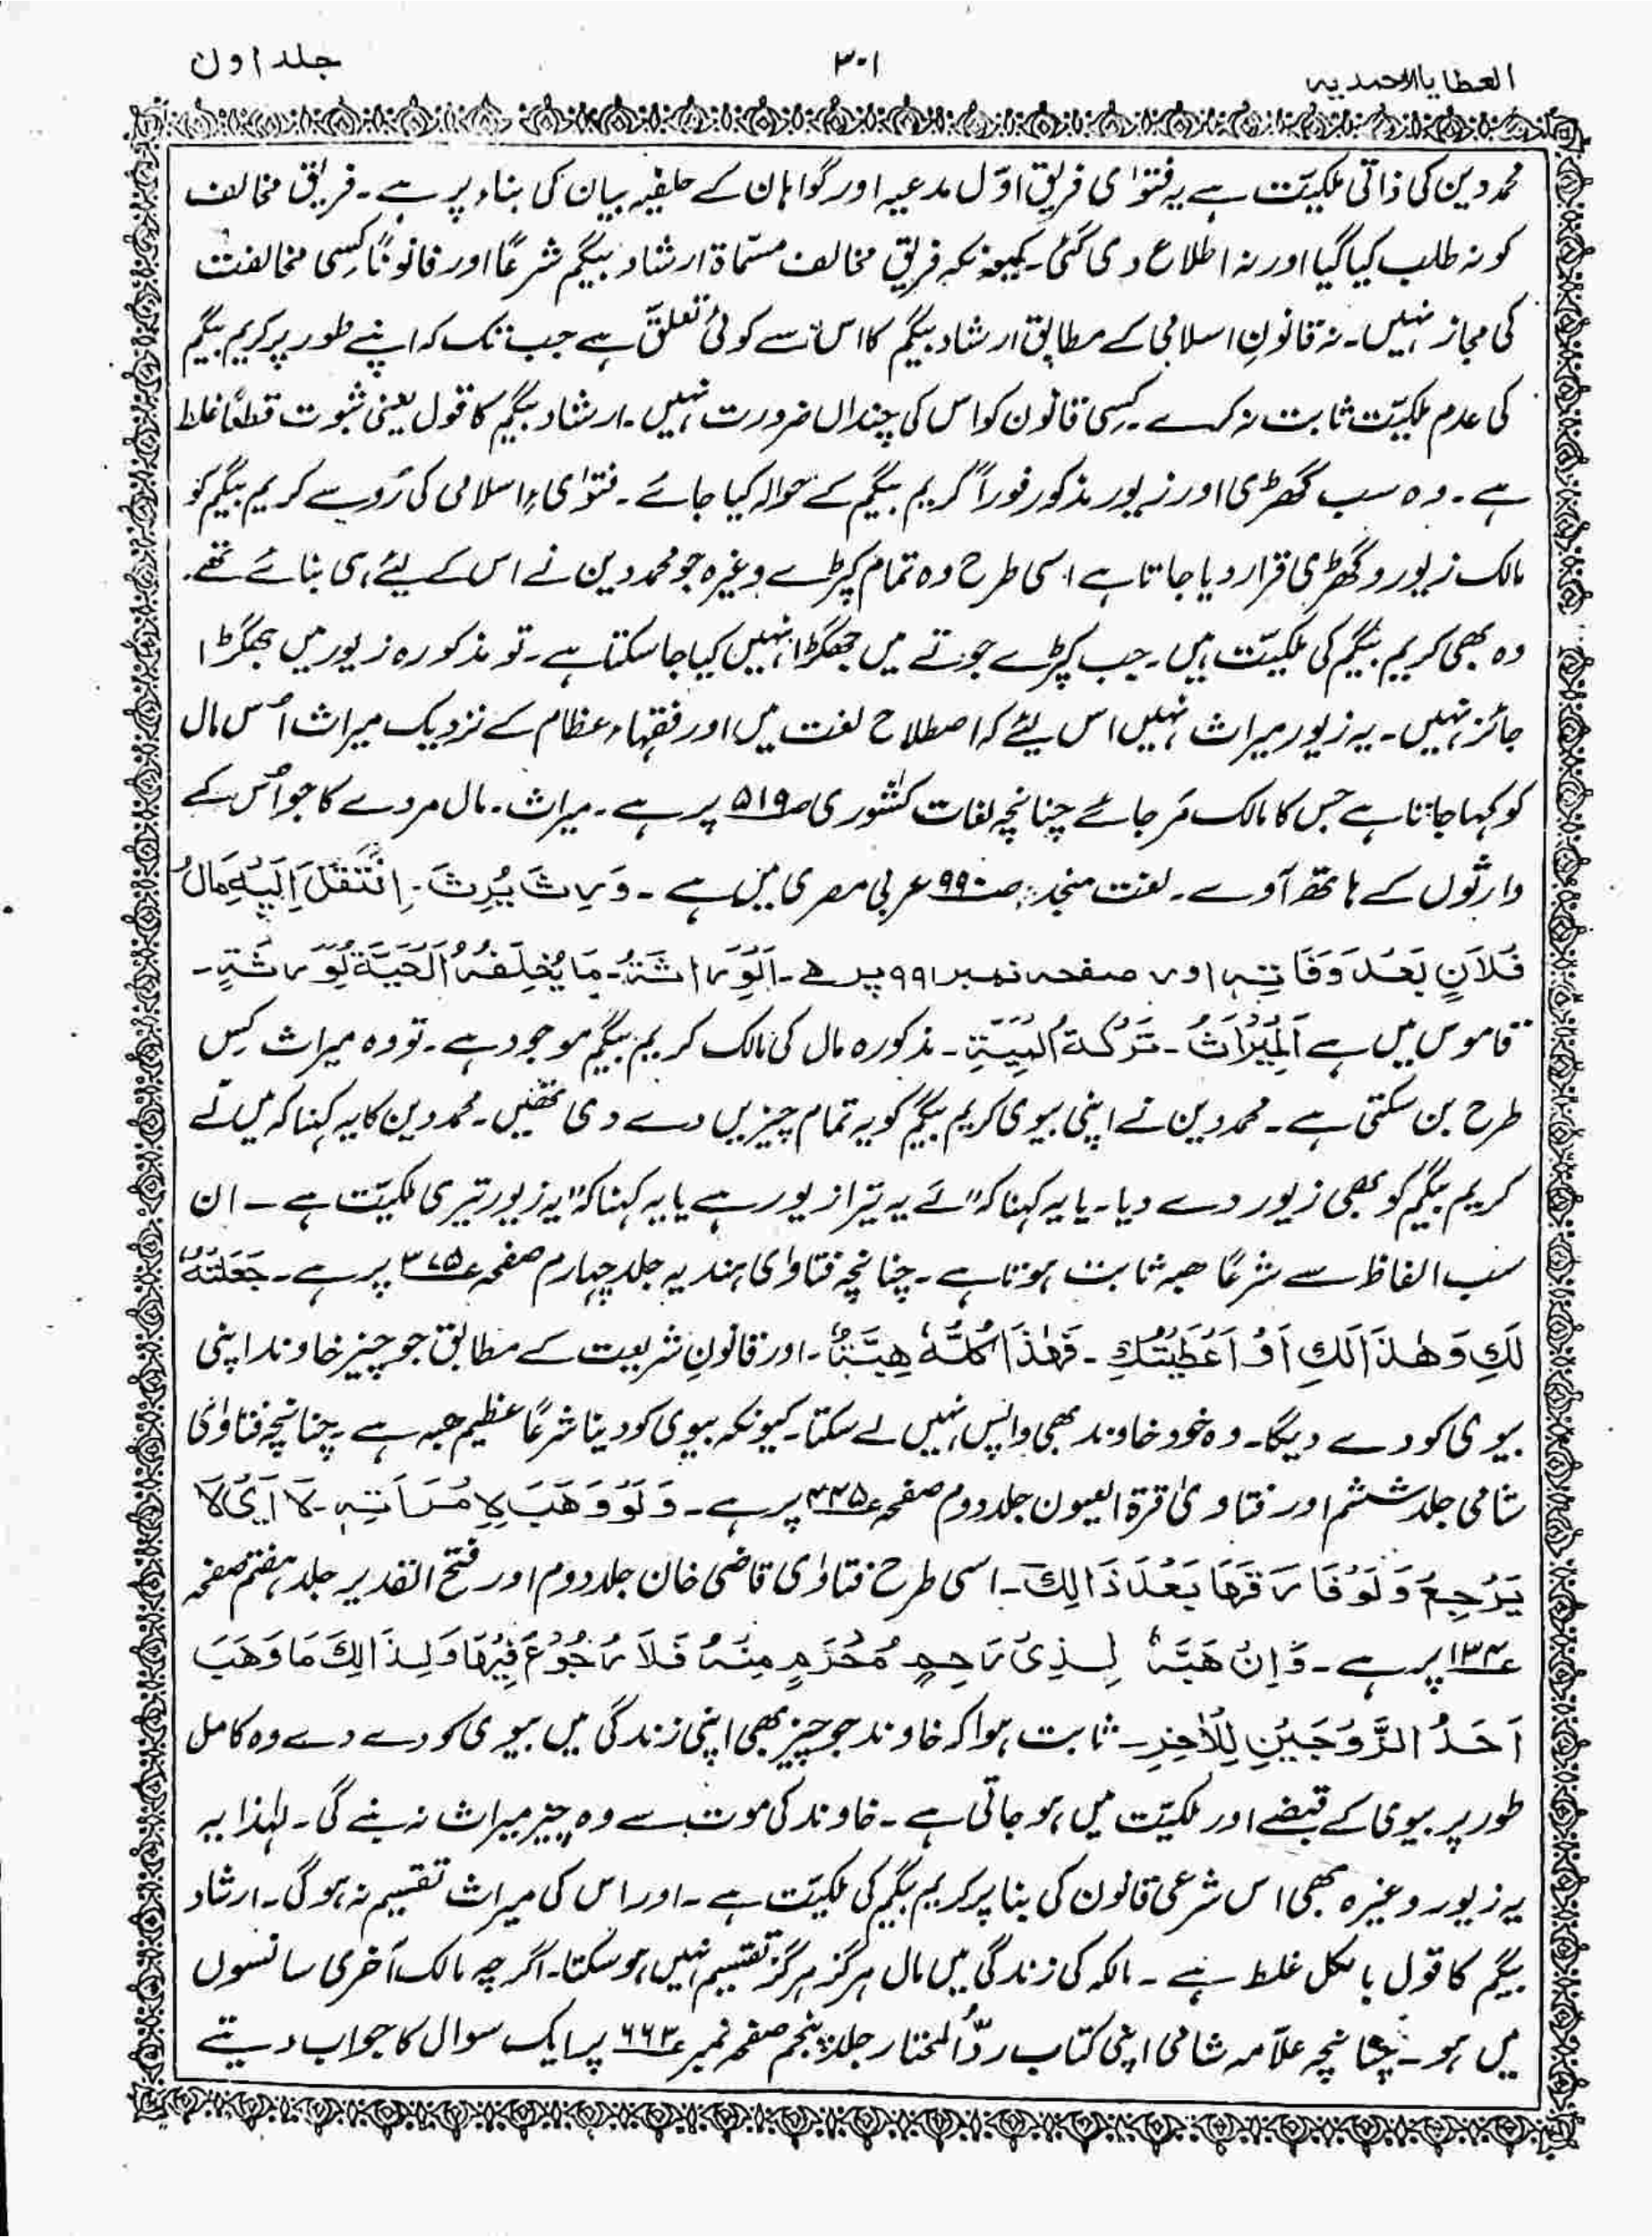 العطایا الاحمدیہ
۳۰۱
جلد اول
محمد دین کی ذاتی ملکیّت ہے یہ فتوٰی فریق اوّل مدعیہ اور گواہان کے حلفیہ بیان کی بناء پر ہے۔ فریق مخالف
کو نہ طلب کیا گیا اور نہ اطلاع دی گئی۔ کیونکہ فریق مخالف مسمّاۃ ارشاد بیگم شرعًا اور قانونًا کسِی مخالفت
کی مجاز نہیں۔ نہ قانونِ اسلامی کے مطابق ارشاد بیگم کا اس سے کوئی تعلّق ہے جب تک کہ اپنے طور پر کریم بیگم
کی عدم ملکیّت ثابت نہ کرے۔ کسِی قانون کو اس کی چنداں ضرورت نہیں۔ ارشاد بیگم کا قول یعنی ثبوت قطعًا غلط
ہے۔ وہ سب گھڑی اور زیور مذکور فوراً کریم بیگم کے حوالہ کیا جائے۔ فتوٰیءِ اسلامی کی رُو سے کریم بیگم کو
مالک زیور و گھڑی قرار دیا جاتا ہے اسی طرح وہ تمام کپڑے وغیرہ جو محمد دین نے اس کے لیئے ہی بنائے تھے۔
وہ بھی کریم بیگم کی ملکیّت ہیں۔ جب کپڑے جوتے میں جھگڑا نہیں کیا جا سکتا ہے۔ تو مذکورہ زیور میں جھگڑا
جائز نہیں۔ یہ زیور میراث نہیں اس لیئے کہ اصطلاح لغت میں اور فقہاء عظام کے نزدیک میراث اُس مال
کو کہا جاتا ہے جس کا مالک مَر جائے چنانچہ لغات کشوری صـ۵۱۹ پر ہے۔ میراث۔ مال مردے کا جو اُس کے
وارثوں کے ہاتھ آوے۔ لغت منجد صـ۹۹۰ عربی مصری میں ہے۔ وَرِثَ یُرِثَ۔ اِنْتَقَلَ اِلَیْہِ مَالُ
فُلَانٍ بَعْدَ وَفَاتِہٖ اور صفحہ نمبر ۹۹۱ پر ہے۔ اَلْوِرَاثَۃُ۔ مَا یُخْلِفُہُ الْحَیَّۃُ لِوَرَثَتِہٖ۔
قاموس میں ہے اَلْمِیْرَاثُ۔ تَرْکَۃُ الْمَیِّتِ۔ مذکورہ مال کی مالک کریم بیگم موجود ہے۔ تو وہ میراث کِس
طرح بن سکتی ہے۔ محمد دین نے اپنی بیوی کریم بیگم کو یہ تمام چیزیں دے دی تھیں۔ محمد دین کا یہ کہنا کہ میں نے
کریم بیگم کو بھی زیور دے دیا۔ یا یہ کہنا کہ "لے یہ تیرا زیور ہے یا یہ کہنا کہ "یہ زیور تیری ملکیّت ہے ۔ ان
سب الفاظ سے شرعًا ھبہ ثابت ہوتا ہے۔ چنانچہ فتاوٰی ہندیہ جلد چہارم صفحہ ۳۷۵ پر ہے۔ جَعَلْتُہٗ
لَکِ وَ ھٰذَا لَکِ اَوْ اَعْطَیْتُکِ ۔ فَھٰذَا کُلُّہٗ ھِبَّۃٌ۔ اور قانونِ شریعت کے مطابق جو چیز خاوند اپنی
بیوی کو دے دیگا۔ وہ خود خاوند بھی واپس نہیں لے سکتا۔ کیونکہ بیوی کو دینا شرعًا عظیم ھبہ ہے۔ چنانچہ فتاوٰی
شامی جلد ششم اور فتاویٰ قرۃ العیون جلد دوم صفحہ ۴۴۵ پر ہے۔ وَ لَوْ وَھَبَ لِاِمْرَاَتِہٖ لَا اَیْ لَا
یَرْجِعُ وَ لَوْ فَارَقَھَا بَعْدَ ذَالِکَ۔ اسی طرح فتاوٰی قاضی خان جلد دوم اور فتح القدیر جلد ہفتم صفحہ
۱۳۴ پر ہے۔ وَ اِنْ ھَبَّۃٌ لِذِیْ رَحِمٍ مُحْرَمٍ مِنْہُ فَلَا رُجُوْعَ فِیْھَا وَلِذَالِکَ مَا وَھَبَ
اَحَدُ الزَّوْجَیْنِ لِلْاٰخِرِ۔ ثابت ہوا کہ خاوند جو چیز بھی اپنی زندگی میں بیوی کو دے دے وہ کامل
طور پر بیوی کے قبضے اور ملکیّت میں ہو جاتی ہے۔ خاوند کی موت سے وہ چیز میراث نہ بنے گی۔ لہٰذا یہ
یہ زیور وغیرہ بھی اس شرعی قانون کی بنا پر کریم بیگم کی ملکیّت ہے۔ اور اس کی میراث تقسیم نہ ہو گی۔ ارشاد
بیگم کا قول بالکل غلط ہے۔ مالکہ کی زندگی میں مال ہرگز ہرگز تقسیم نہیں ہو سکتا۔ اگرچہ مالک آخری سانسوں
میں ہو۔ چنانچہ علّامہ شامی اپنی کتاب ردُّ المختار جلد پنجم صفحہ نمبر ۶۶۳ پر ایک سوال کا جواب دیتے